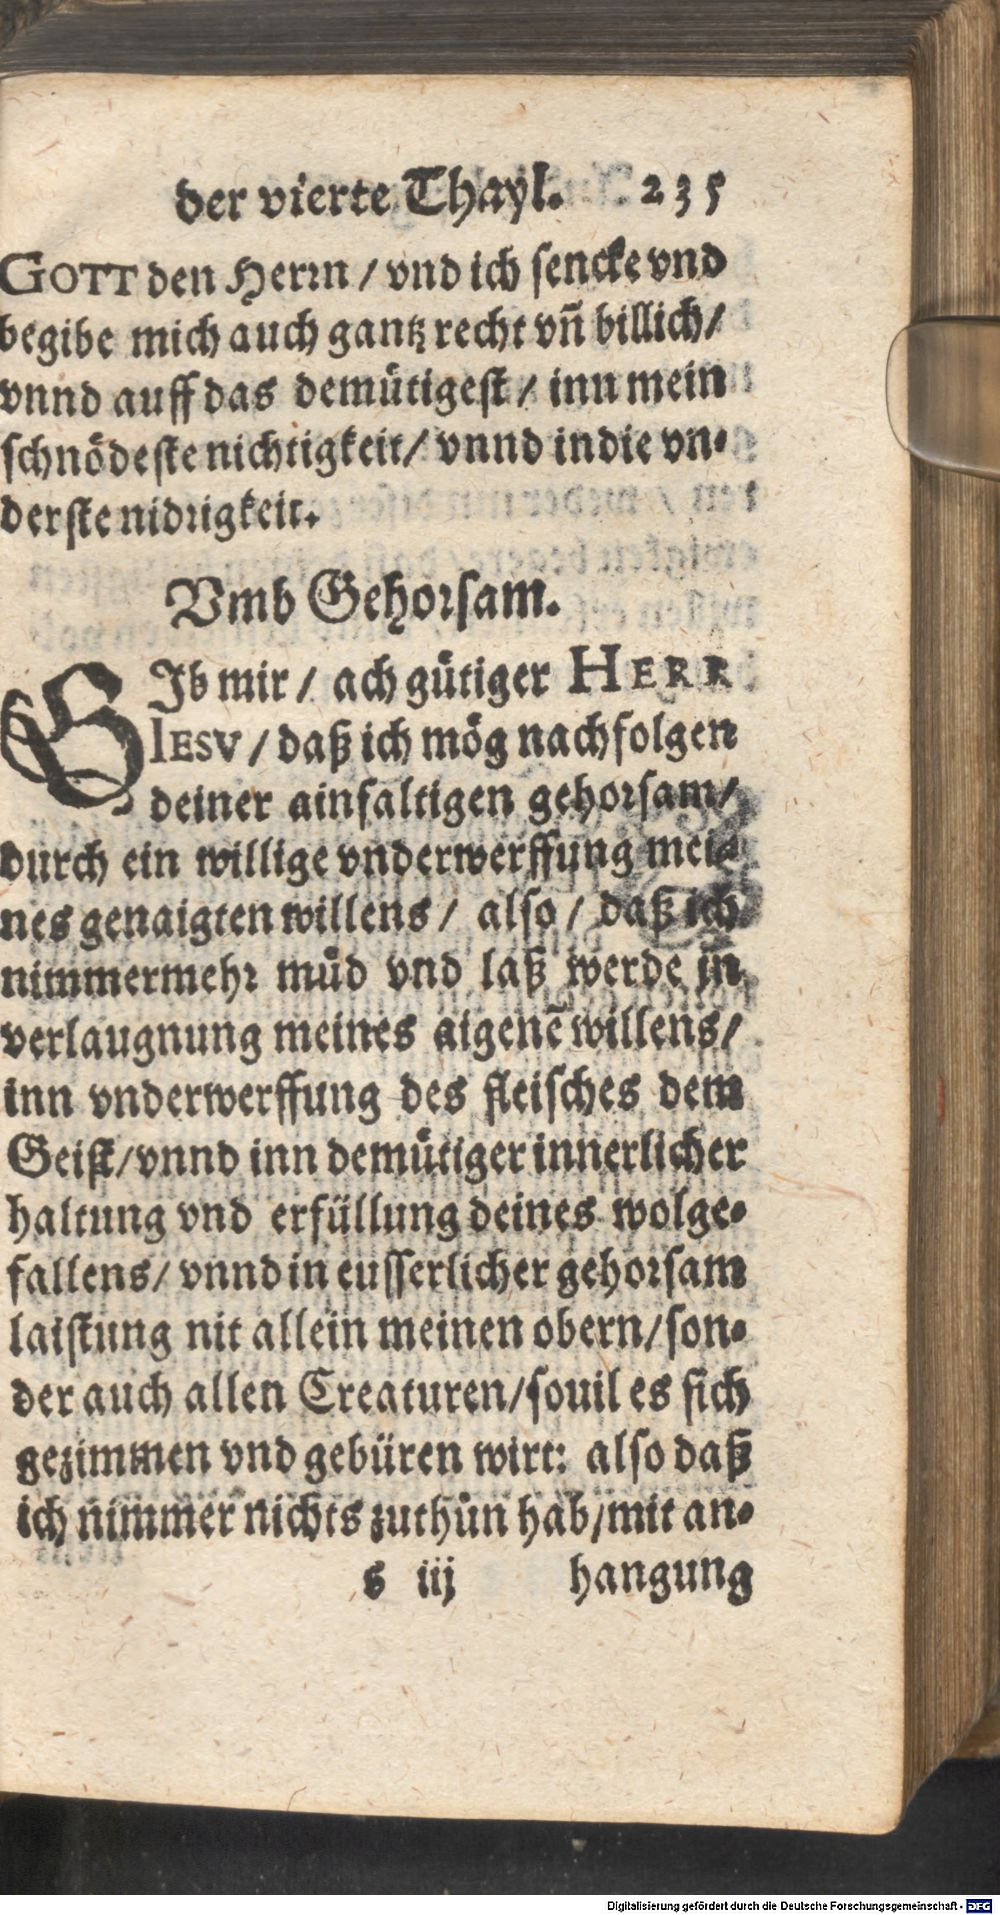 der vierte Thayl. 235
GOTT den Herrn / vnd ich sencke vnd
begibe mich auch gantz recht vñ billich/
vnnd auff das demütigest / inn mein
schnödeste nichtigkeit/ vnnd in die vn-
derste nidrigkeit.
Vmb Gehorsam.
GIb mir / ach gütiger HERR
IESV / daß ich mög nachfolgen
deiner ainfaltigen gehorsam/
durch ein willige vnderwerffung mei-
nes genaigten willens / also / daß ich
nimmermehr müd vnd laß werde jn
verlaugnung meines aigenẽ willens/
inn vnderwerffung des fleisches dem
Geist/vnnd inn demütiger innerlicher
haltung vnd erfüllung deines wolge-
fallens/ vnnd in eusserlicher gehorsam
laistung nit allein meinen obern/son-
der auch allen Creaturen/souil es sich
gezimmen vnd gebüren wirt: also daß
ich nimmer nichts zuthůn hab/mit an-
s iij hangung
Digitalisierung gefördert durch die Deutsche Forschungsgemeinschaft - DFG